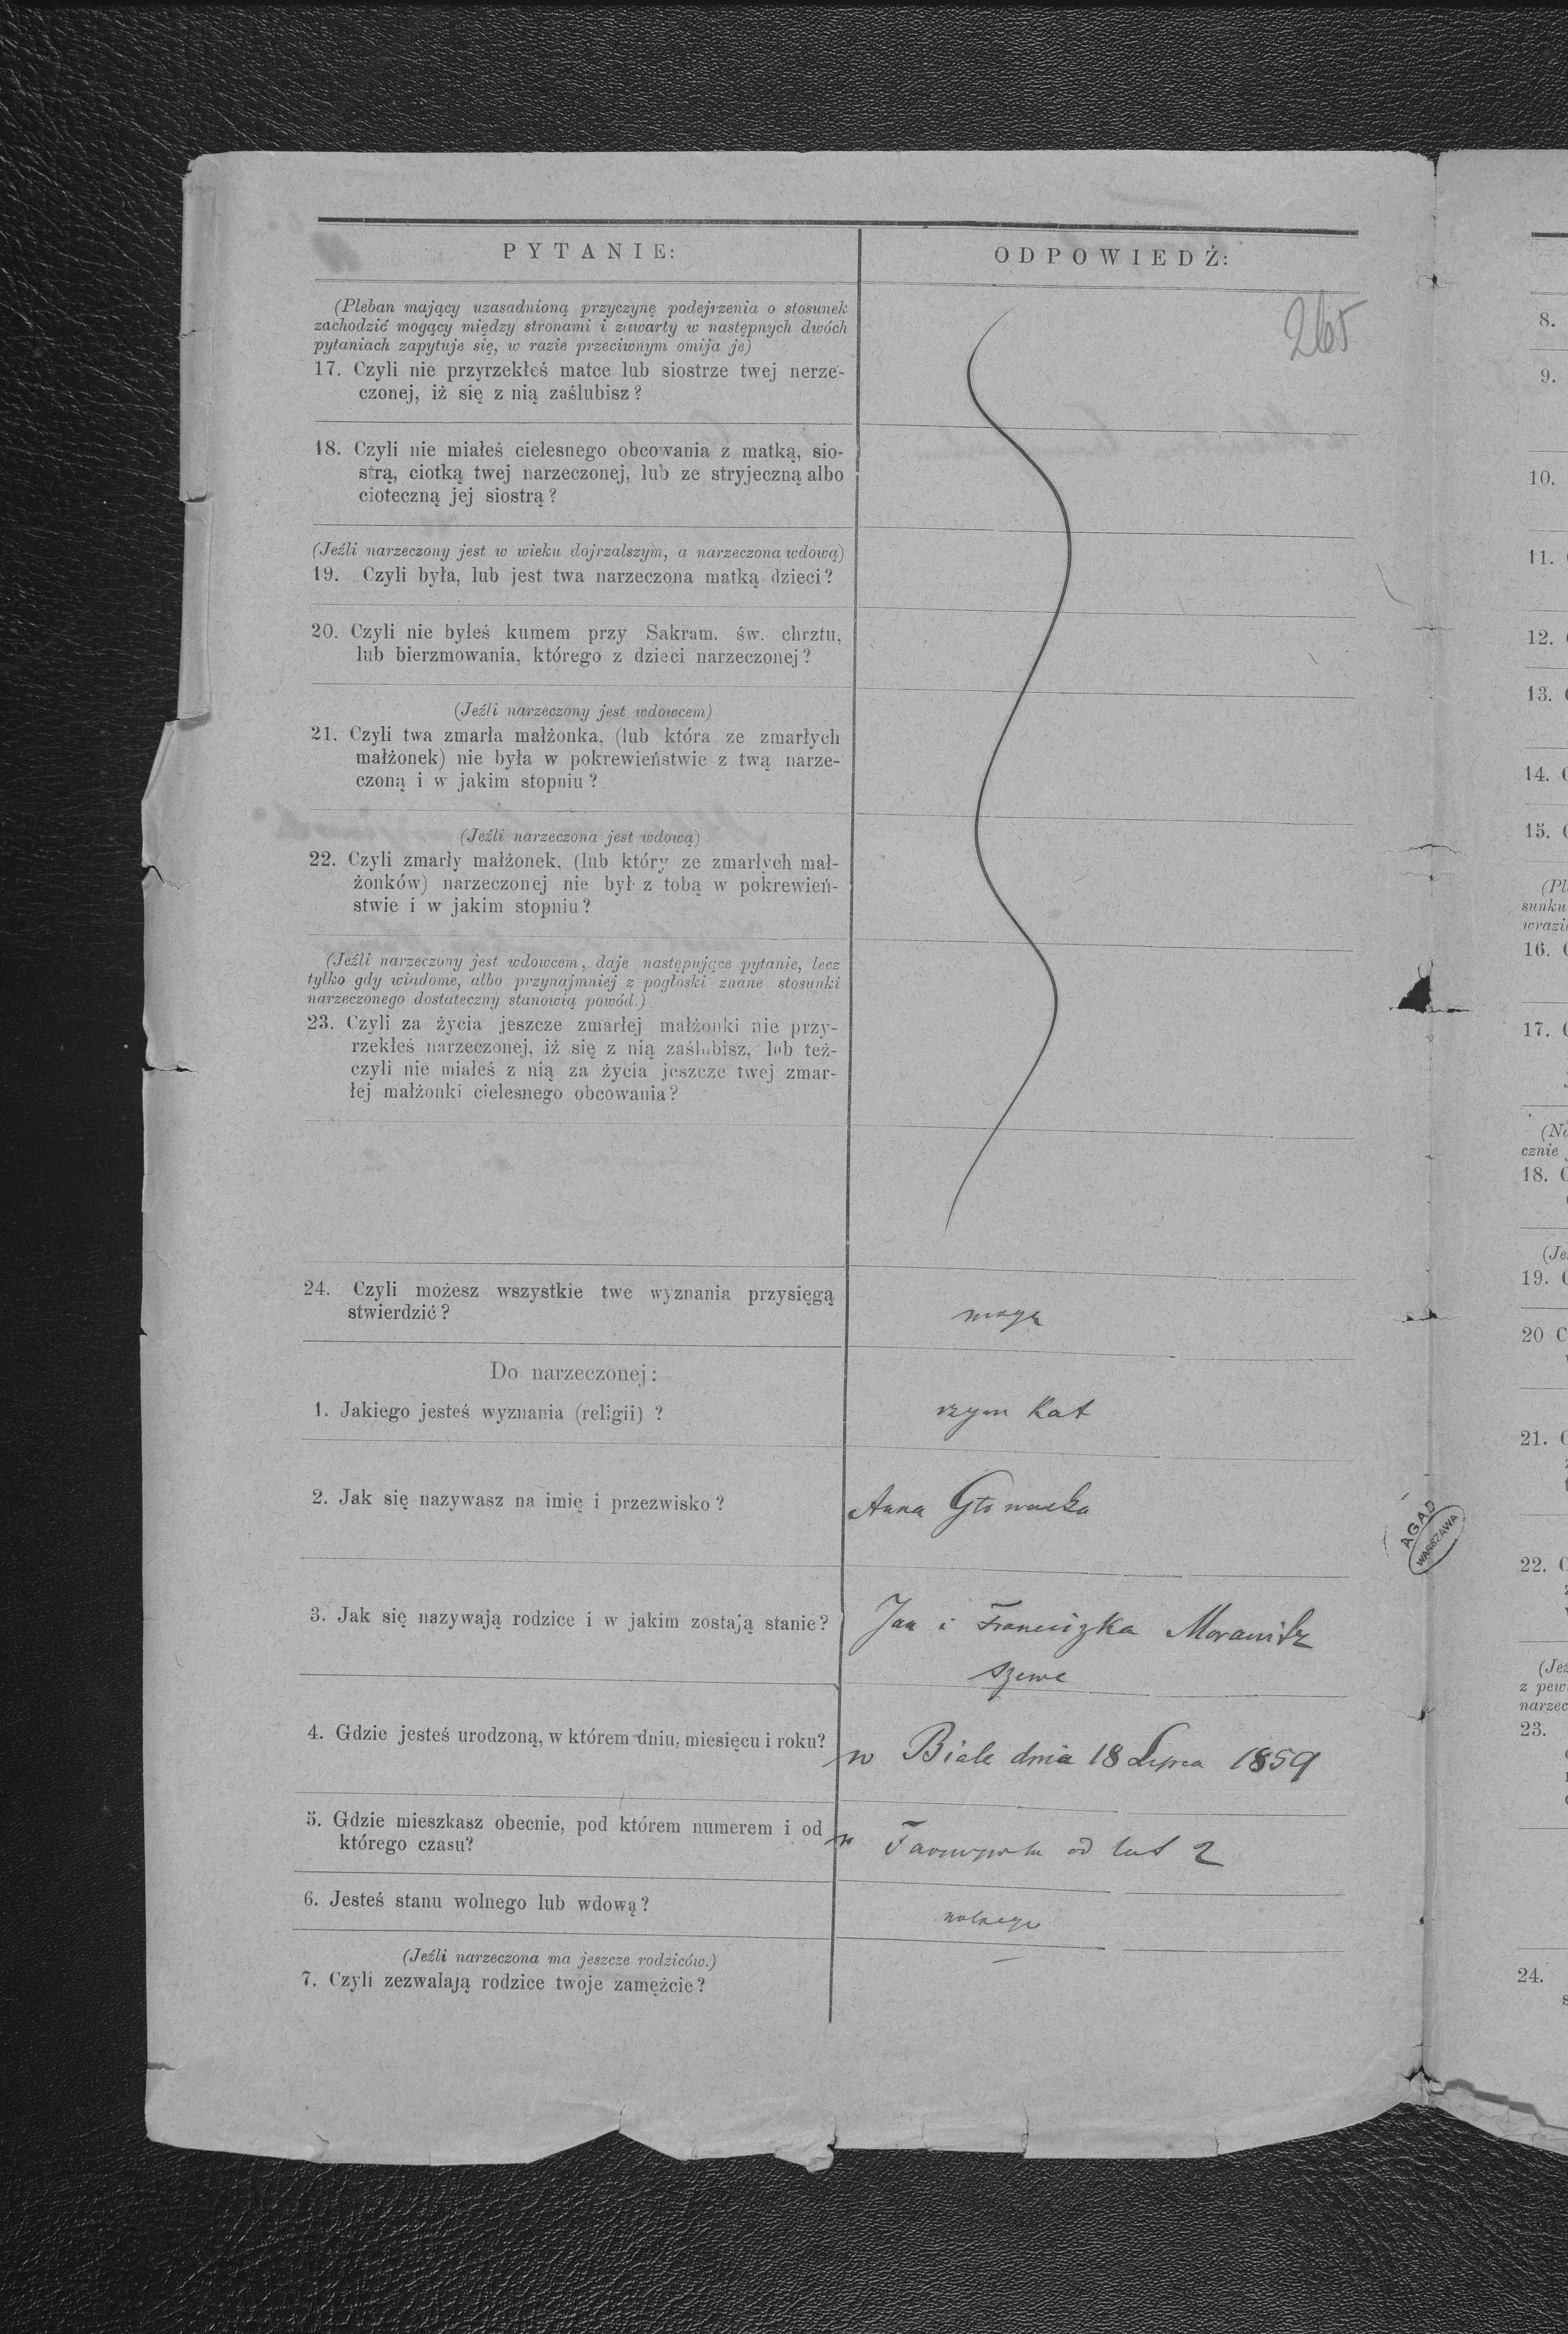 PYTANIE:
ODPOWIEDŹ:
265
(Pleban mający uzasadnioną przyczynę podejrzenia o stosunek
zachodzić mogący między stronami i zawarty w następnych dwóch
pytaniach zapytuje się, w razie przeciwnym omija je)
17. Czyli nie przyrzekłeś matce lub siostrze twej nerze-
czonej, iż się z nią zaślubisz?
18. Czyli nie miałeś cielesnego obcowania z matką, sio-
strą, ciotką twej narzeczonej, lub ze stryjeczną albo
cioteczną jej siostrą?
(Jeźli narzeczony jest w wieku dojrzalszym, a narzeczona wdową)
19. Czyli była, lub jest twa narzeczona matką dzieci?
20. Czyli nie byłeś kumem przy Sakram. św. chrztu,
lub bierzmowania, którego z dzieci narzeczonej?
(Jeźli narzeczony jest wdowcem)
21. Czyli twa zmarła małżonka, (lub która ze zmarłych
małżonek) nie była w pokrewieństwie z twą narze-
czoną i w jakim stopniu?
(Jeźli narzeczona jest wdową)
22. Czyli zmarły małżonek, (lub który ze zmarłych mał-
żonków) narzeczonej nie był z tobą w pokrewień-
stwie i w jakim stopniu?
(Jeźli narzeczony jest wdowcem, daje następujące pytanie, lecz
tylko gdy wiadome, albo przynajmniej z pogłoski znane stosunki
narzeczonego dostateczny stanowią powód.)
23. Czyli za życia jeszcze zmarłej małżonki nie przy-
rzekłeś narzeczonej, iż się z nią zaślubisz, lub też-
czyli nie miałeś z nią za życia jeszcze twej zmar-
łej małżonki cielesnego obcowania?
24. Czyli możesz wszystkie twe wyznania przysięgą
stwierdzić?
mogę
Do narzeczonej:
1. Jakiego jesteś wyznania (religii) ?
rzym kat
2. Jak się nazywasz na imię i przezwisko?
Anna Głowacka
3. Jak się nazywają rodzice i w jakim zostają stanie?
Jan i Franciszka Morawitz
szewc
4. Gdzie jesteś urodzoną, w którem dniu, miesięcu i roku?
w Biale dnia 18 Lipca 1859
5. Gdzie mieszkasz obecnie, pod którem numerem i od
którego czasu?
w Tarnopolu od lat 2
6. Jesteś stanu wolnego lub wdową?
wolnego
(Jeźli narzeczona ma jeszcze rodziców.)
7. Czyli zezwalają rodzice twoje zamężcie?
—
AGAD
WARSZAWA
8.
9.
10.
11.
12.
13.
14.
15.
(Pl
sunku
wrazi
16.
17.
cznie
18.
(Je
19.
20
21.
22.
z pew
narzec
23.
24.